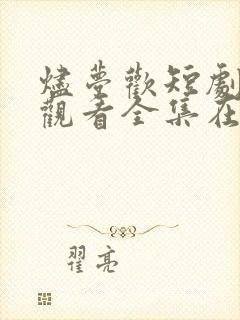 燼夢歡短劇
觀看全集在
翟亮